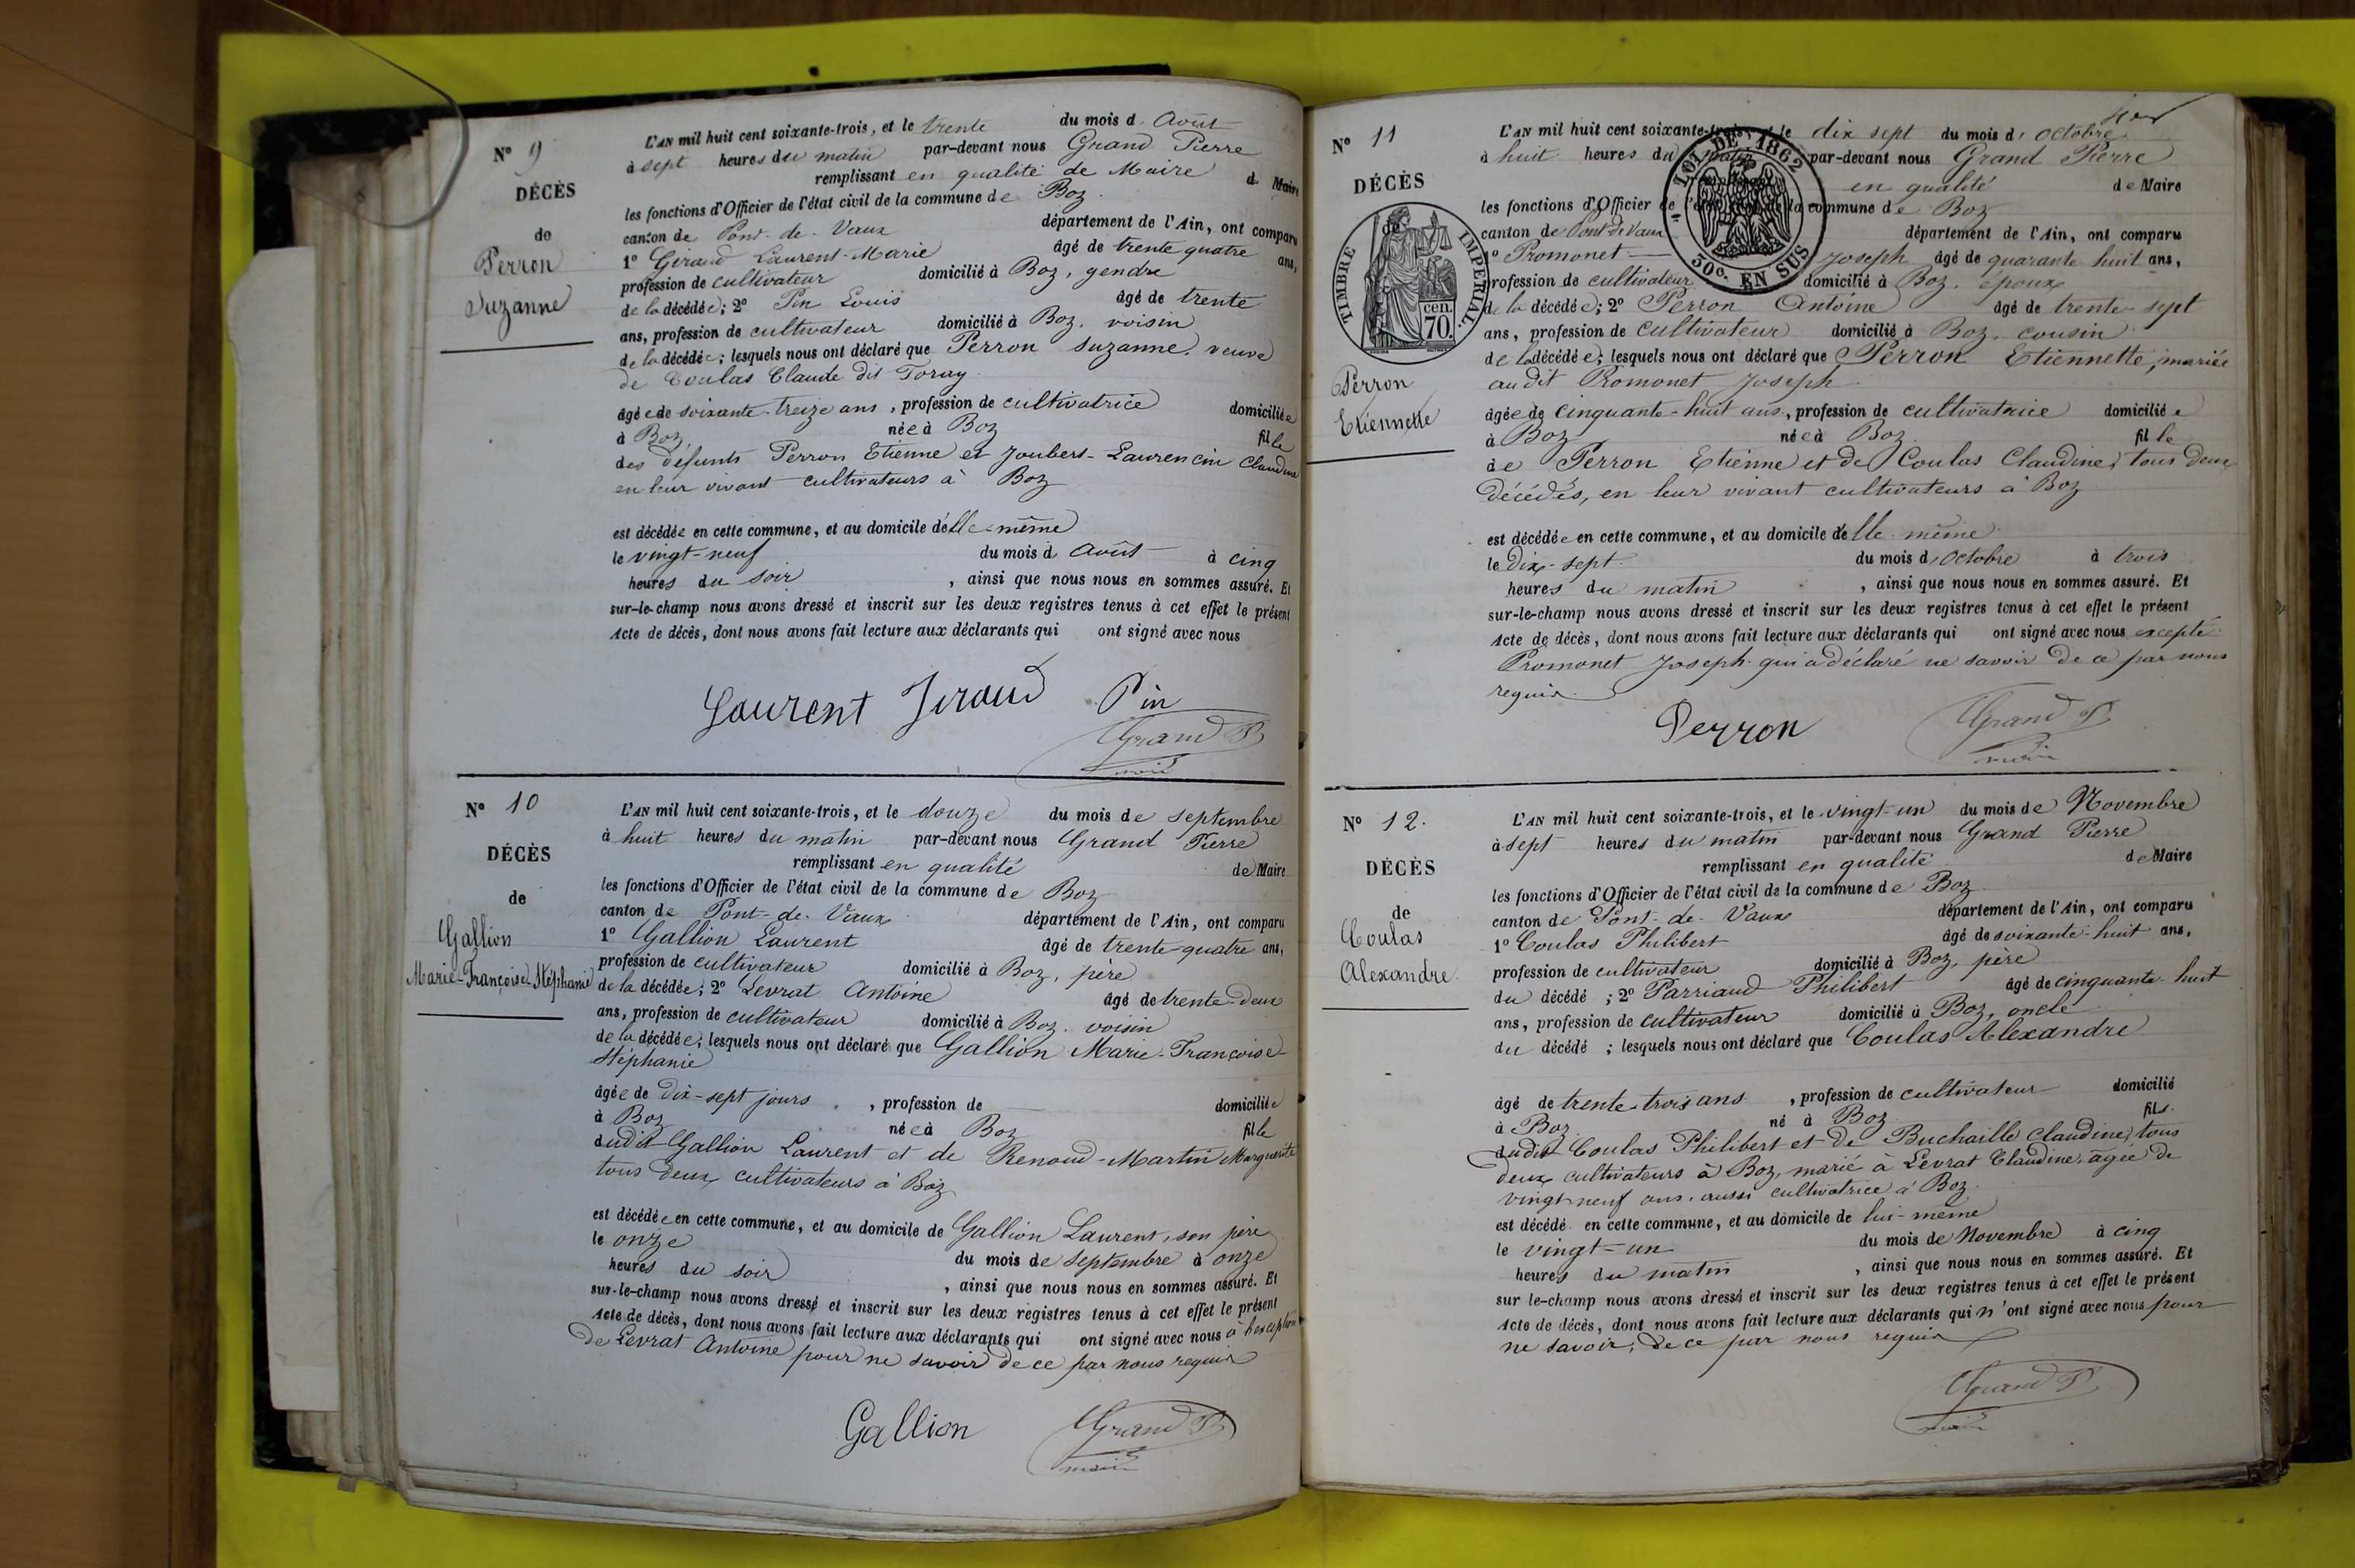 N° 9
DÉCÈS
de
Perron
Suzanne
L'AN mil huit cent soixante-trois, et le trente du mois d'Août
à sept heures du matin par-devant nous Grand Pierre
remplissant en qualité de Maire de Maire
les fonctions d'Officier de l'état civil de la commune de Boz
canton de Pont-de-Vaux département de l'Ain, ont comparu
1° Giraud Laurent-Marie âgé de trente quatre ans,
profession de cultivateur domicilié à Boz, gendre
de la décédée; 2° Pin Louis âgé de trente
ans, profession de cultivateur domicilié à Boz, voisin
de la décédée; lesquels nous ont déclaré que Perron Suzanne, veuve
de Coulas Claude dit Toray
âgée de soixante-treize ans, profession de cultivatrice domiciliée
à Boz, née à Boz fille
des défunts Perron Etienne et Joubert-Laurencin Claudine
en leur vivant cultivateurs à Boz
est décédée en cette commune, et au domicile d'elle-même
le vingt-neuf du mois d'Août à cinq
heures du soir, ainsi que nous nous en sommes assuré. Et
sur-le-champ nous avons dressé et inscrit sur les deux registres tenus à cet effet le présent
Acte de décès, dont nous avons fait lecture aux déclarants qui ont signé avec nous
Laurent Jiraud Pin
Grand P
maire
N° 10
DÉCÈS
de
Gallion
Marie-Françoise Stéphanie
L'AN mil huit cent soixante-trois, et le douze du mois de septembre
à huit heures du matin par-devant nous Grand Pierre
remplissant en qualité de Maire
les fonctions d'Officier de l'état civil de la commune de Boz
canton de Pont-de-Vaux département de l'Ain, ont comparu
1° Gallion Laurent âgé de trente-quatre ans,
profession de cultivateur domicilié à Boz, père
de la décédée; 2° Levrat Antoine âgé de trente-deux
ans, profession de cultivateur domicilié à Boz, voisin
de la décédée; lesquels nous ont déclaré que Gallion Marie-Françoise-
Stéphanie
âgée de dix-sept jours, profession de domiciliée
à Boz née à Boz fille
dudit Gallion Laurent et de Renoud-Martin Marguerite
tous deux cultivateurs à Boz
est décédée en cette commune, et au domicile de Gallion Laurent, son père
le onze du mois de Septembre à onze
heures du soir, ainsi que nous nous en sommes assuré. Et
sur-le-champ nous avons dressé et inscrit sur les deux registres tenus à cet effet le présent
Acte de décès, dont nous avons fait lecture aux déclarants qui ont signé avec nous à l'exception
de Levrat Antoine pour ne savoir de ce par nous requis
Gallion Grand P
maire
N° 11
DÉCÈS
de
TIMBRE IMPÉRIAL.
cen. 70.
Perron
Etiennette
LOI DE 1862
30c. EN SUS
L'AN mil huit cent soixante-trois, et le dix sept du mois d'Octobre
à huit heures du matin par-devant nous Grand Pierre
en qualité de Maire
les fonctions d'Officier de l'état civil de la commune de Boz
canton de Pont de Vaux département de l'Ain, ont comparu
1° Promonet Joseph âgé de quarante huit ans,
profession de cultivateur domicilié à Boz, époux
de la décédée; 2° Perron Antoine âgé de trente-sept
ans, profession de cultivateur domicilié à Boz, cousin
de la décédée; lesquels nous ont déclaré que Perron Etiennette, mariée
audit Promonet Joseph
âgée de cinquante-huit ans, profession de cultivatrice domiciliée
à Boz née à Boz fille
de Perron Etienne et de Coulas Claudine, tous deux
décédés, en leur vivant cultivateurs à Boz
est décédée en cette commune, et au domicile d'elle même
le Dix-sept du mois d'Octobre à trois
heures du matin, ainsi que nous nous en sommes assuré. Et
sur-le-champ nous avons dressé et inscrit sur les deux registres tenus à cet effet le présent
Acte de décès, dont nous avons fait lecture aux déclarants qui ont signé avec nous excepté
Promonet Joseph qui a déclaré ne savoir de ce par nous
requis
Perron Grand P
maire
N° 12.
DÉCÈS
de
Coulas
Alexandre
L'AN mil huit cent soixante-trois, et le vingt-un du mois de Novembre
à sept heures du matin par-devant nous Grand Pierre
remplissant en qualité de Maire
les fonctions d'Officier de l'état civil de la commune de Boz
canton de Pont-de-Vaux département de l'Ain, ont comparu
1° Coulas Philibert âgé de soixante-huit ans,
profession de cultivateur domicilié à Boz, père
du décédé; 2° Parriaud Philibert âgé de cinquante-huit
ans, profession de cultivateur domicilié à Boz, oncle
du décédé; lesquels nous ont déclaré que Coulas Alexandre
âgé de trente-trois ans, profession de cultivateur domicilié
à Boz né à Boz fils
dudit Coulas Philibert et de Buchaille Claudine, tous
deux cultivateurs à Boz, marié à Levrat Claudine, âgée de
vingt-neuf ans, aussi cultivatrice à Boz
est décédé en cette commune, et au domicile de lui-même
le vingt-un du mois de Novembre à cinq
heures du matin, ainsi que nous nous en sommes assuré. Et
sur le-champ nous avons dressé et inscrit sur les deux registres tenus à cet effet le présent
Acte de décès, dont nous avons fait lecture aux déclarants qui n'ont signé avec nous pour
ne savoir, de ce par nous requis
Grand P
maire